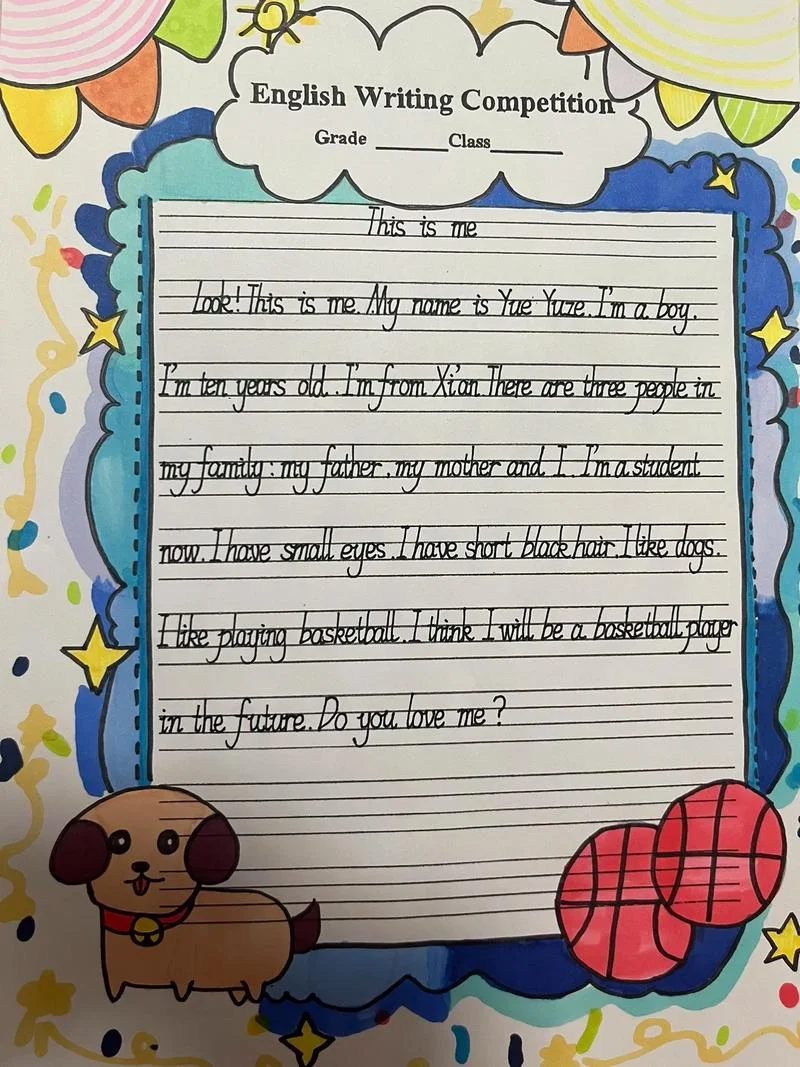 English Writing Competition
Grade ______ Class ______
This is me
Look! This is me. My name is Yue Yuze. I'm a boy.
I'm ten years old. I'm from Xi'an. There are three people in
my family: my father, my mother and I. I'm a student
now. I have small eyes. I have short black hair. I like dogs.
I like playing basketball. I think I will be a basketball player
in the future. Do you love me?